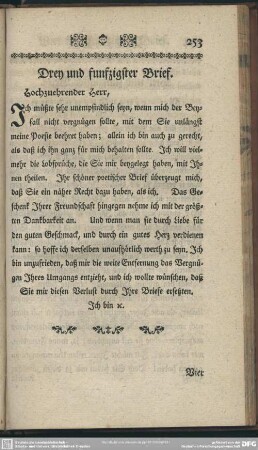 253
Drey und funfzigster Brief.
Hochzuehrender Herr,
Ich müßte sehr unempfindlich seyn, wenn mich der Bey-
fall nicht vergnügen sollte, mit dem Sie unlängst
meine Poesie beehret haben; allein ich bin auch zu gerecht,
als daß ich ihn ganz für mich behalten sollte. Ich will viel-
mehr die lobsprüche, die Sie mir beygeleget haben, mit Ih-
nen theilen. Ihr schöner poetischer Brief überzeugt mich,
daß Sie ein näher Recht dazu haben, als ich. Das Ge-
schenk Ihrer Freundschaft hingegen nehme ich mit der größ-
ten Dankbarkeit an. Und wenn man sie durch liebe für
den guten Geschmack, und durch ein gutes Herz verdienen
kann: so hoffe ich derselben unaufhörlich werth zu seyn. Ich
bin unzufrieden, daß mir die weite Entfernung das Vergnü-
gen Ihres Umgangs entzieht, und ich wollte wünschen, daß
Sie mir diesen Verlust durch Ihre Briefe ersetzten.
Ich bin ꝛc.
Vier